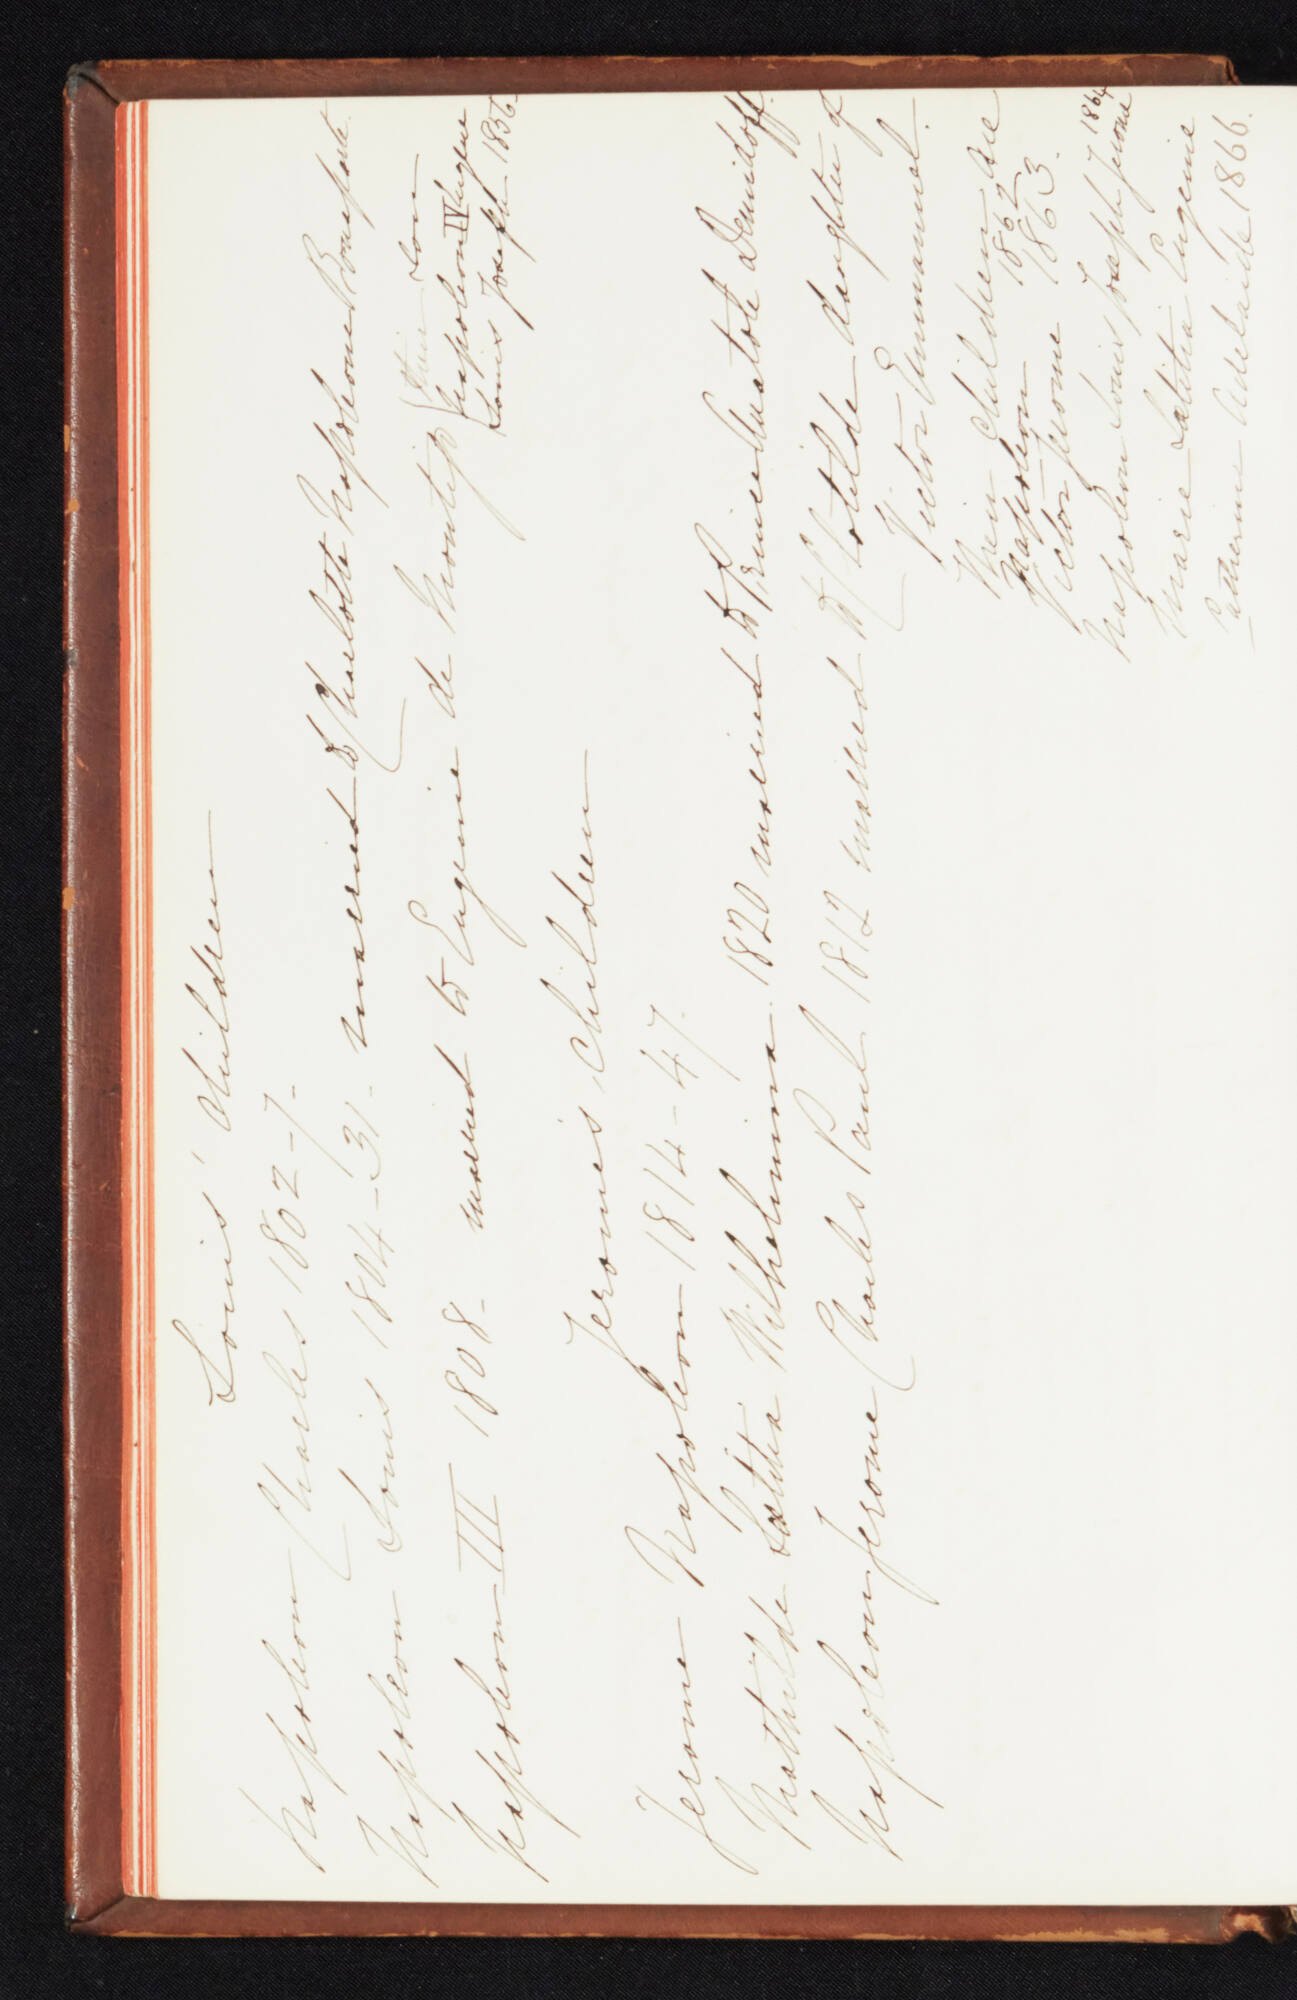 Louis' Children
Napoleon Charles 1802-7-
Napoleon Louis 1804-31- married to Charlotte Napoleone Bonaparte.
Napoleon III 1808- married to Eugenie de Montijo { their son
Napoleon IV Eugene
Louis Joseph 1856-
Jerome's Children
Jerome Napoleon 1814-47.
Mathilde Lætitia Wilhelmina. 1820 married to Prince Anatole Demidoff.
Napoleon Jerome Charles Paul 1812 married to Clotilde daughter of
Victor Emmanuel.
Their children are
Napoleon 1862
Victor Jerome 1863.
Napoleon Louis Joseph Jerome 1864
Marie Latitia Eugenie
Catherine Adelaide 1866.